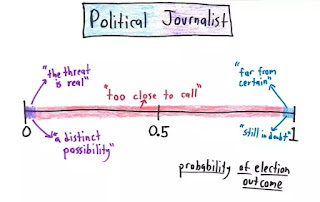 Political Journalist
"the threat
is real"
"too close to call"
"far from
certain"
0
0.5
1
"a distinct
possibility"
"still in doubt"
probability of election
outcome